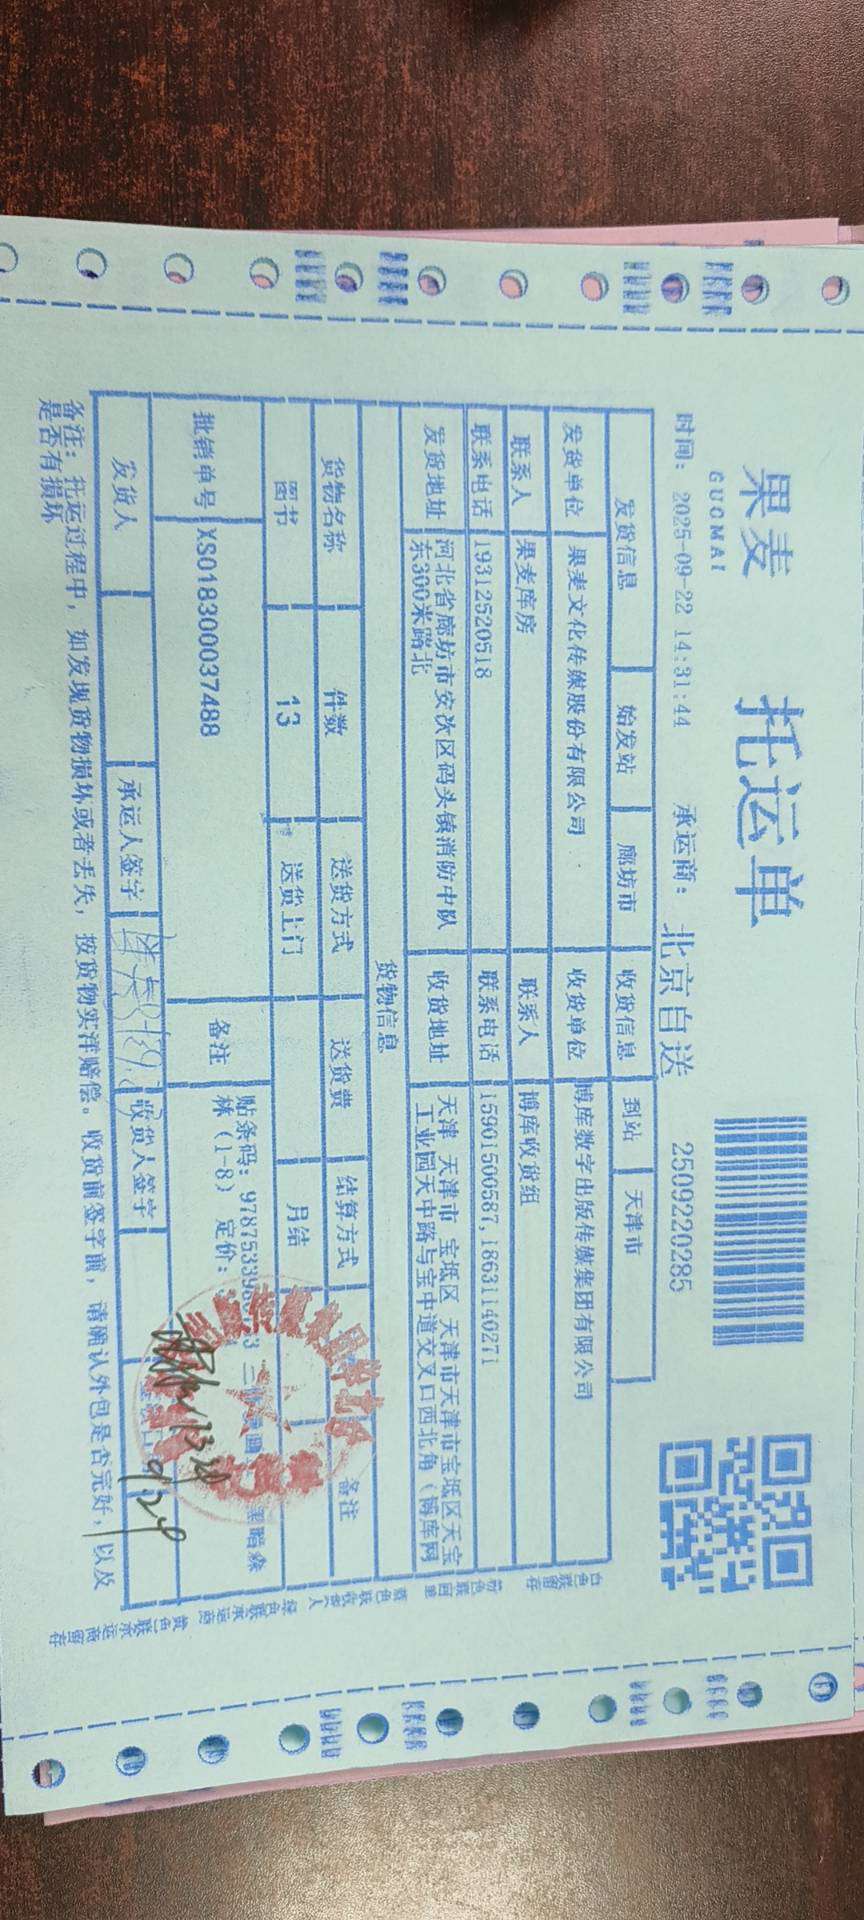 果麦
GUOMAI
托运单
2509220285
时间: 2025-09-22 14:31:44 承运商: 北京自送
发货信息 始发站 廊坊市 收货信息 到站 天津市
发货单位 果麦文化传媒股份有限公司 收货单位 博库数字出版传媒集团有限公司
联系人 果麦库房 联系人 博库收货组
联系电话 19312520518 联系电话 15901500587,18631140271
发货地址 河北省廊坊市安次区码头镇消防中队 收货地址 天津 天津市 宝坻区 天津市天津市宝坻区天宝
东300米路北 工业园天中路与宝中道交叉口西北角（博库网
货物信息
货物名称 件数 送货方式 送货费 结算方式 备注
图书 13 送货上门 月结
批销单号 XS018300037488 备注 贴条码: 97875339 3 三 画 黑暗森
林（1-8）定价:
发货人 承运人签字 收货人签字
备注: 托运过程中, 如发现货物损坏或者丢失, 按货物实洋赔偿。收货前签字前, 请确认外包是否完好, 以及
是否有损坏
9.29
白色联留存
粉色联回单
蓝色联收货人
绿色联承运商
黄色联承运商留存